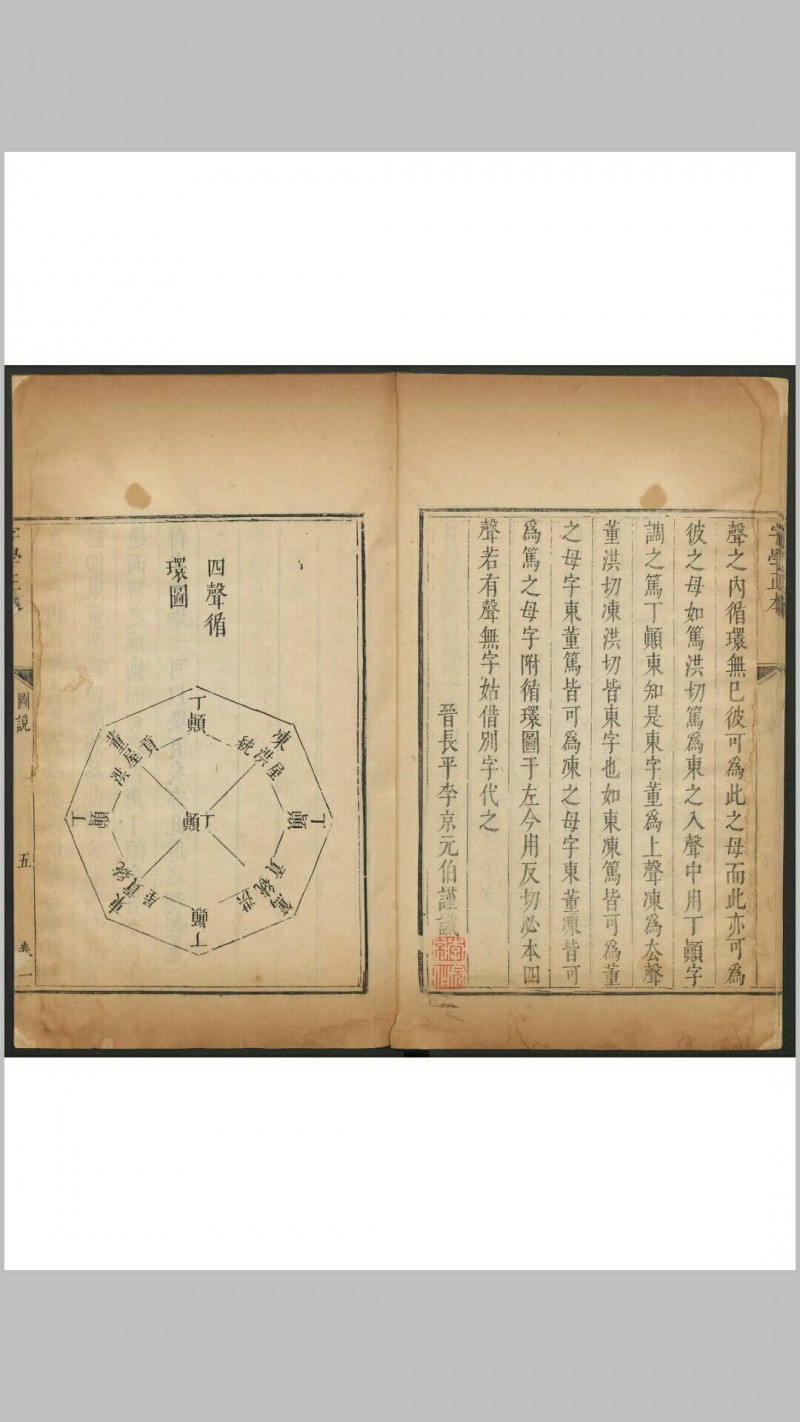 字學正本
聲之內循環無已彼可為此之母而此亦可為
彼之母如篤洪切篤為東之入聲中用丁顚字
調之篤丁顚東知是東字董為上聲凍為厺聲
董洪切凍洪切皆東字也如東凍篤皆可為董
之母字東董篤皆可為凍之母字東董凍皆可
為篤之母字附循環圖于左今用反切必本四
聲若有聲無字姑借別字代之
晉長平李京元伯謹識
四聲循
環圖
丁顚
凍
屋洪統
丁顚
篤
貢統洪
丁顚
東
屋貢統
丁顚
董
貢屋洪
丁顚
圖說
五
卷一